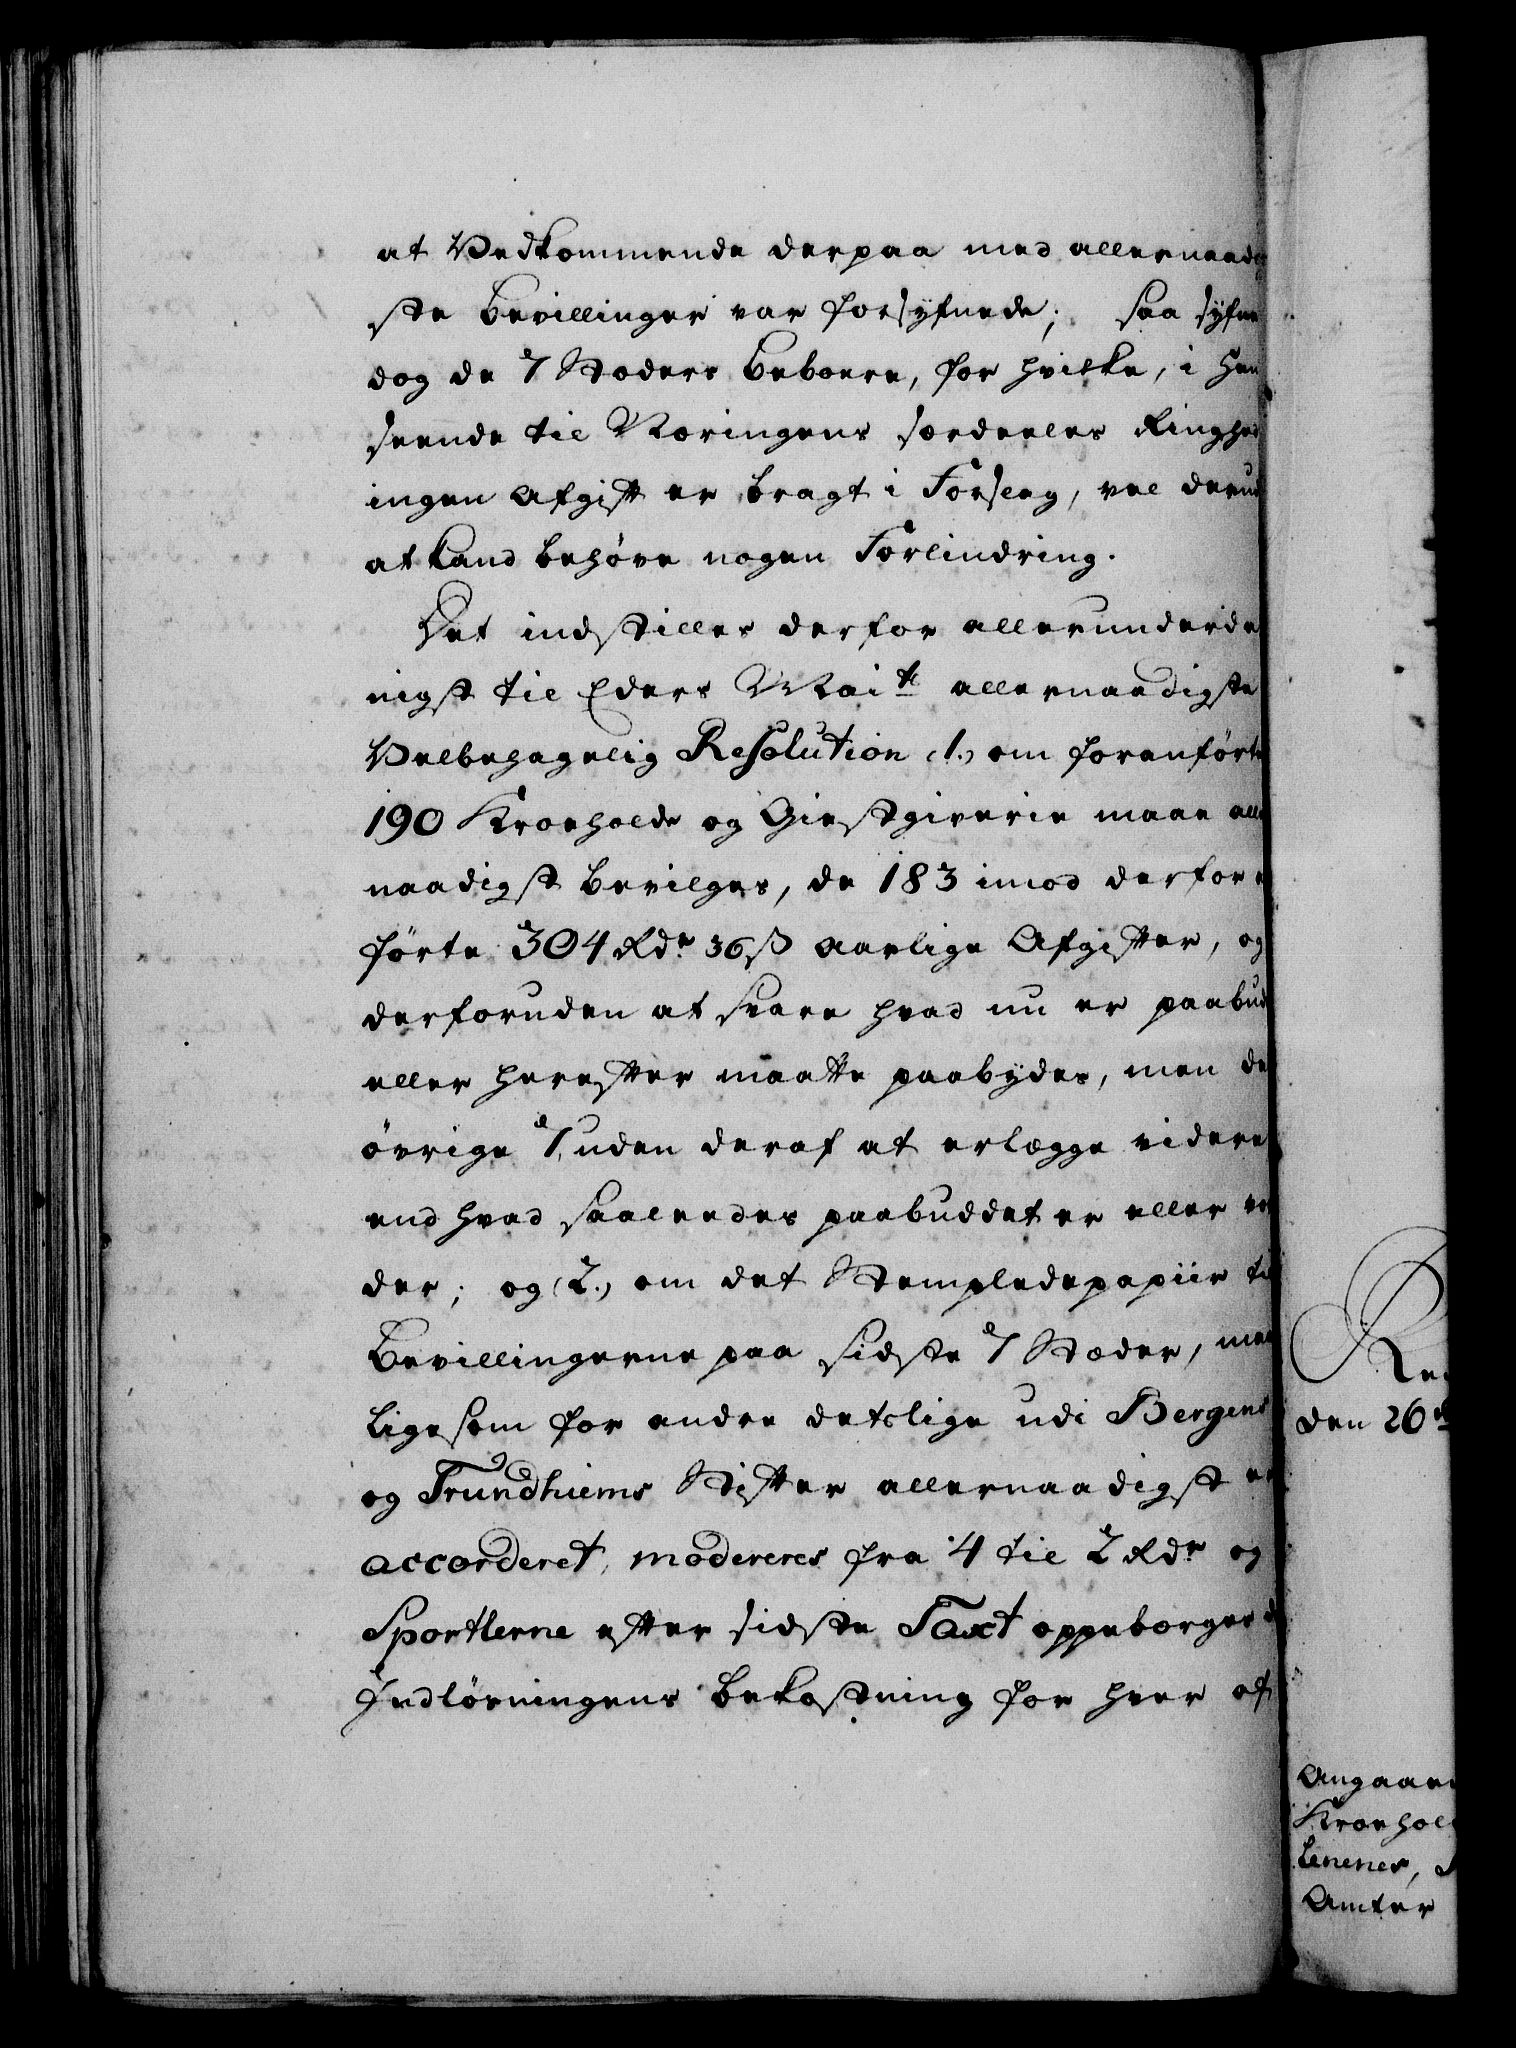 at Vedkommende derpaa med allernaadig
ste Bevillinger var forsÿfnede; saa sÿfne
dog de 7 Stoders Beboere, for hvilke, i Hen
seende til Næringens særdeeles Ringhed
ingen Afgift er bragt i Forslag, vel derud
at kand behøve nogen Forlindring.
Det indstilles derfor allerunderda
nigst til Eders Mai.te allernaadigste
Velbehagelig Resolution (1.) om foranførte
190 Kroeholde og Giestgiverie maae aller
naadigst bevilges, de 183 imod derfor
førte 304 Rdr. 36 ß aarlige Afgifter, og
derforuden at svare hvad nu er paabud
eller herefter maatte paabÿdes, men de
øvrige 7, uden deraf at erlægge videre
end hvad saaleedes paabuddet er eller vor
der; og (2.) om det Stempledepapiir til
Bevillingerne paa sidste 7 Stæder, maa
ligesom for andre detslige udi Bergens
og Trundhiems Stifter allernaadigst er
accorderet, modereres fra 4 til 2 Rdr og
Sportlerne efter sidste Taxt oppebørges
Indløsningens Bekostning for hver af
den 26
Angaaen
Kroehol
Lenenes,
Amter